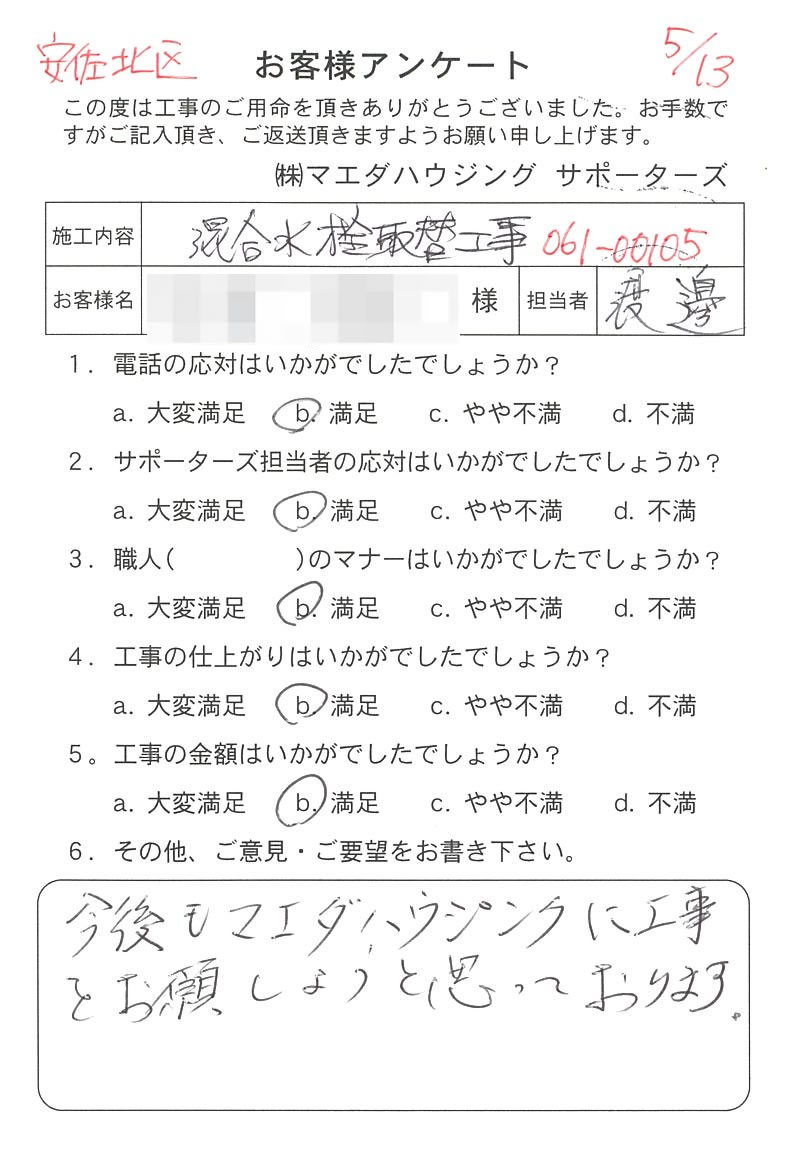 安佐北区
お客様アンケート
5/13
この度は工事のご用命を頂きありがとうございました。お手数で
すがご記入頂き、ご返送頂きますようお願い申し上げます。
㈱マエダハウジング サポーターズ
施工内容 混合水栓取替工事 061-00105
お客様名 様 担当者 渡邊
1. 電話の応対はいかがでしたでしょうか?
a. 大変満足 b. 満足 c. やや不満 d. 不満
2. サポーターズ担当者の応対はいかがでしたでしょうか?
a. 大変満足 b. 満足 c. やや不満 d. 不満
3. 職人( )のマナーはいかがでしたでしょうか?
a. 大変満足 b. 満足 c. やや不満 d. 不満
4. 工事の仕上がりはいかがでしたでしょうか?
a. 大変満足 b. 満足 c. やや不満 d. 不満
5。工事の金額はいかがでしたでしょうか?
a. 大変満足 b. 満足 c. やや不満 d. 不満
6. その他、ご意見・ご要望をお書き下さい。
今後もマエダハウジングに工事
をお願しようと思っております。